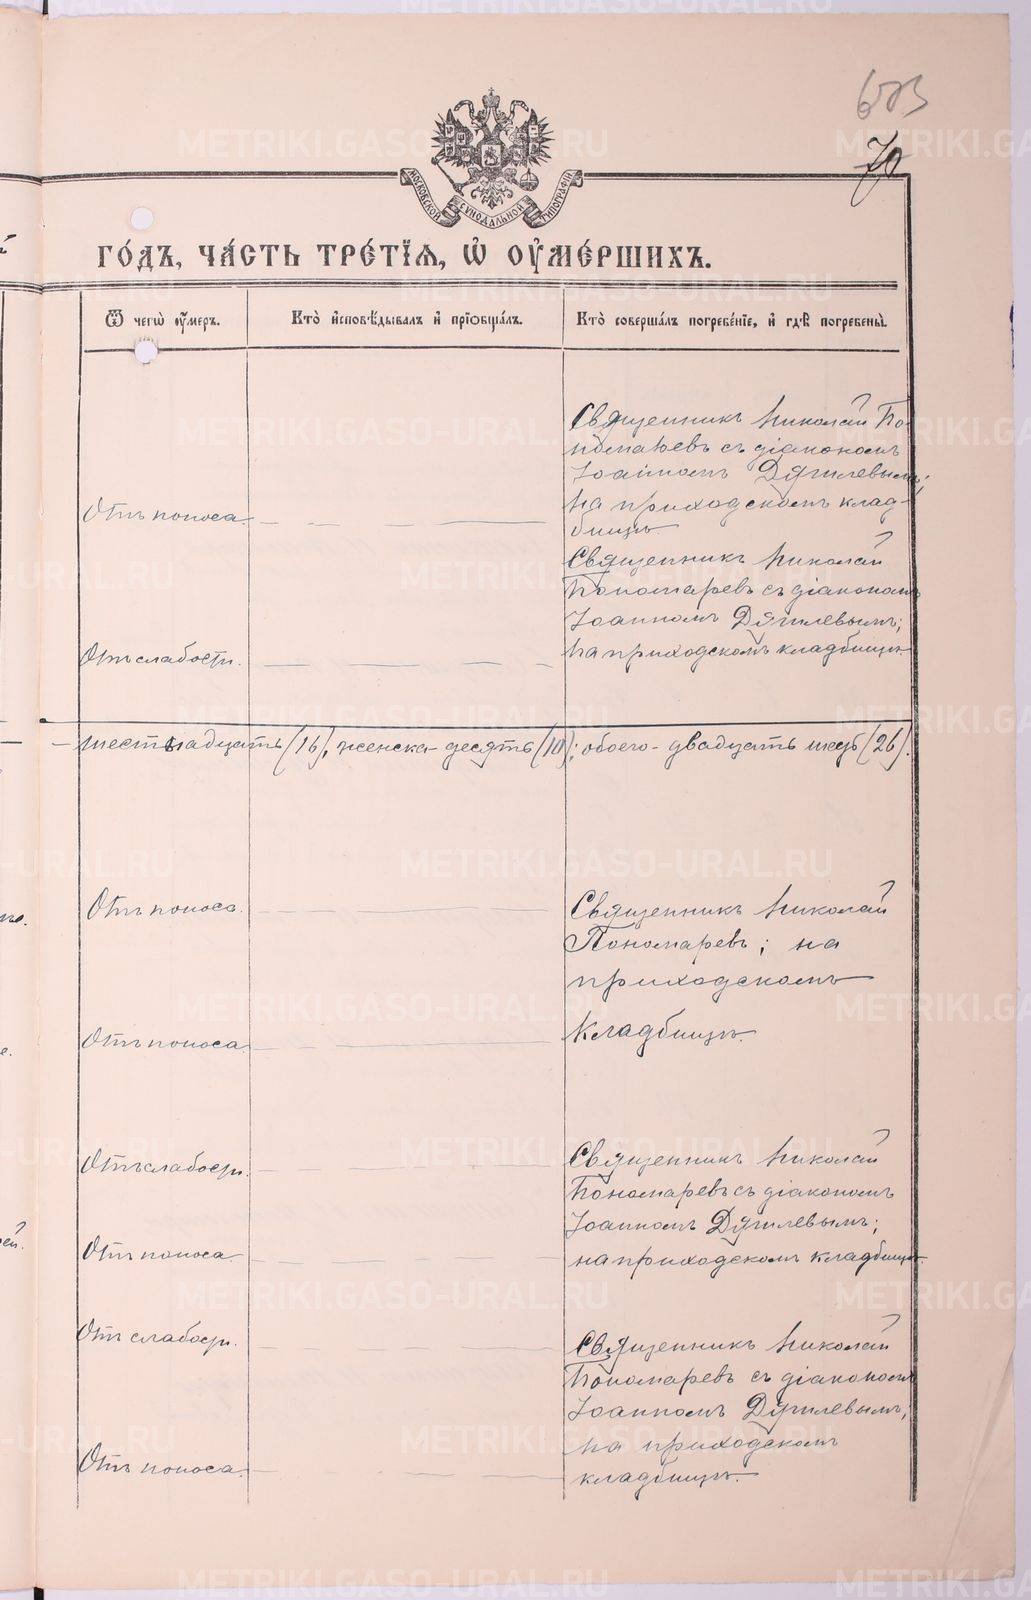 673
70
МОСКОВСКОЙ СѴНОДАЛЬНОЙ ТИПОГРАФІИ
ГО́ДЪ, ЧА́СТЬ ТРЕ́ТІѦ, Ѽ ОУ҆МЕ́РШИХЪ.
Ѿ чегѡ̀ оу҆́меръ.
Кто̀ и҆сповѣ́дывалъ и҆ прїѻбща́лъ.
Кто̀ соверша́лъ погребе́нїе, и҆ гдѣ̀ погребены̀.
Священникъ Николай По-
номаревъ съ діакономъ
Іоанномъ Дягилевымъ;
на приходскомъ клад-
бищѣ
Отъ поноса
Священникъ Николай
Пономаревъ съ діакономъ
Іоанномъ Дягилевымъ;
на приходскомъ кладбищѣ
Отъ слабости.
– шестнадцать (16), женска – десять (10); обоего – двадцать шесть (26).
Отъ поноса.
Священникъ Николай
Пономаревъ; на
приходскомъ
кладбищѣ.
Отъ поноса.
Отъ слабости.
Священникъ Николай
Пономаревъ съ діакономъ
Іоанномъ Дягилевымъ;
на приходскомъ кладбищѣ.
Отъ поноса.
Отъ слабости.
Священникъ Николай
Пономаревъ съ діакономъ
Іоанномъ Дягилевымъ;
на приходскомъ
кладбищѣ.
Отъ поноса.
METRIKI.GASO-URAL.RU